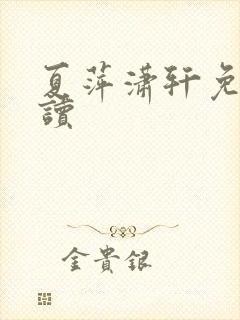 夏萍潇轩免
读
金贵银